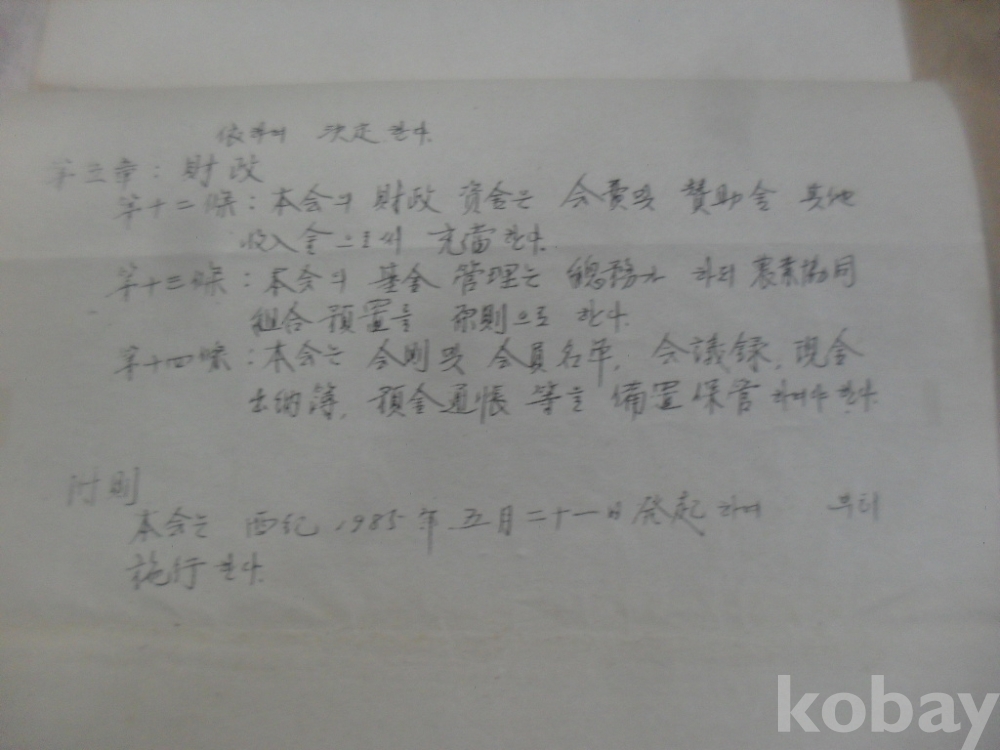 依하여 決定한다.
第五章: 財政
第十二條: 本会의 財政 資金는 会費 및 贊助金 其他
収入金으로써 充當한다.
第十三條: 本会의 基金 管理는 總務가 하되 農業協同
組合 預置를 原則으로 한다.
第十四條: 本会는 会則 및 会員名單, 会議錄, 現金
出納簿, 預金通帳 等을 備置保管하여야 한다.
附則
本会는 西紀 1985年 五月 二十一日 発起하여 부터
施行한다.
kobay